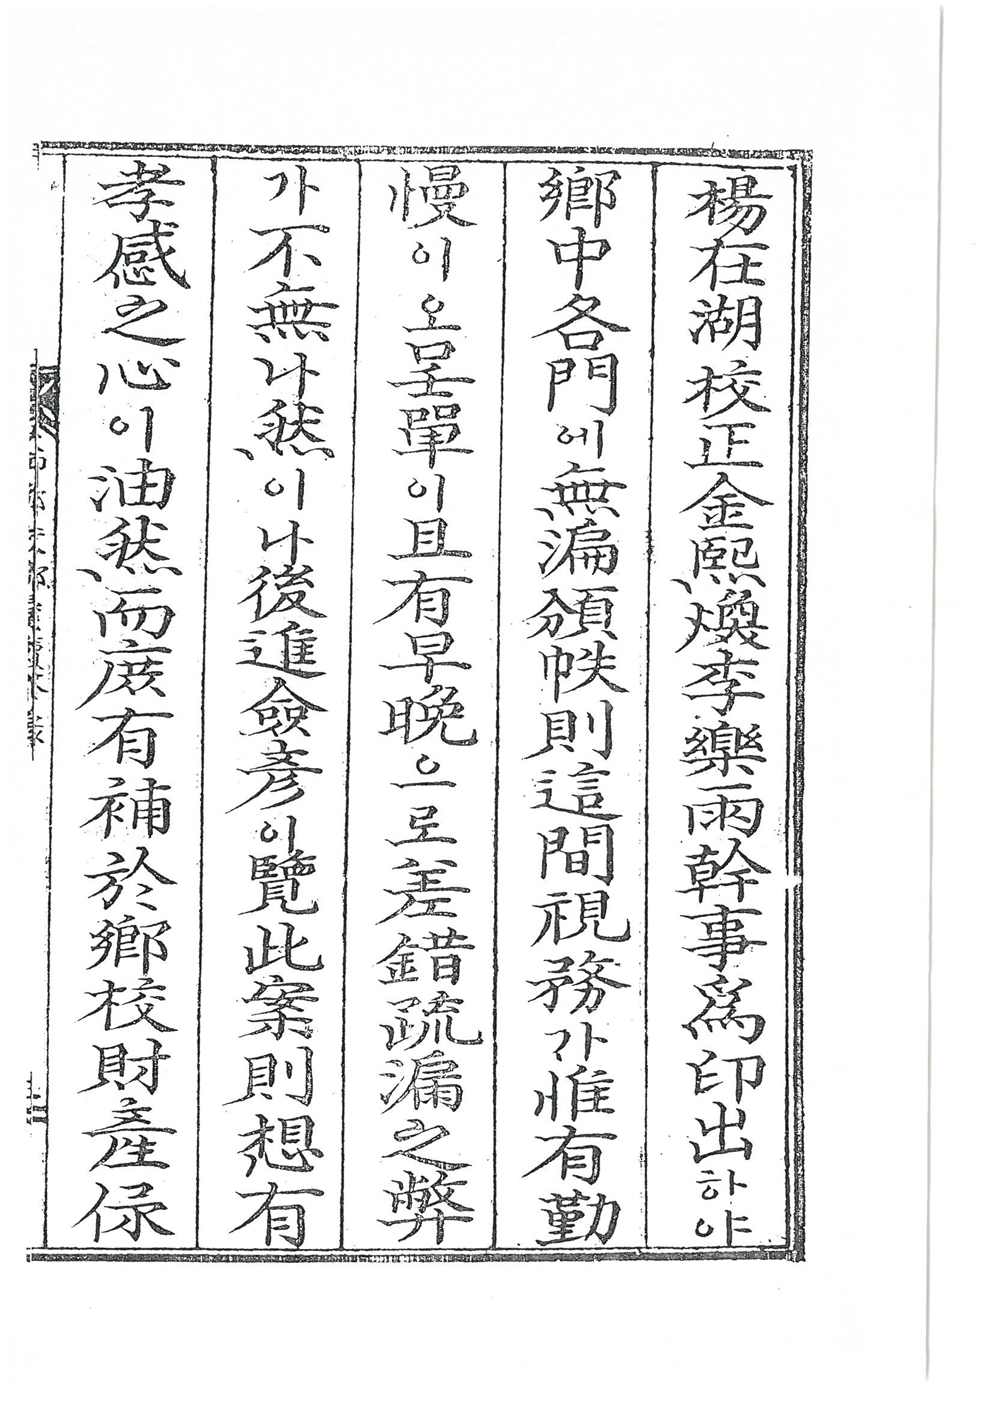 楊在湖校正金熙煥李樂雨幹事爲印出하야
鄕中各門에無漏頒帙則這間視務가惟有勤
慢이오呈單이且有早晩으로差錯疏漏之弊
가不無나然이나後進僉彥이覽此案則想有
孝感之心이油然而庶有補於鄕校財產保